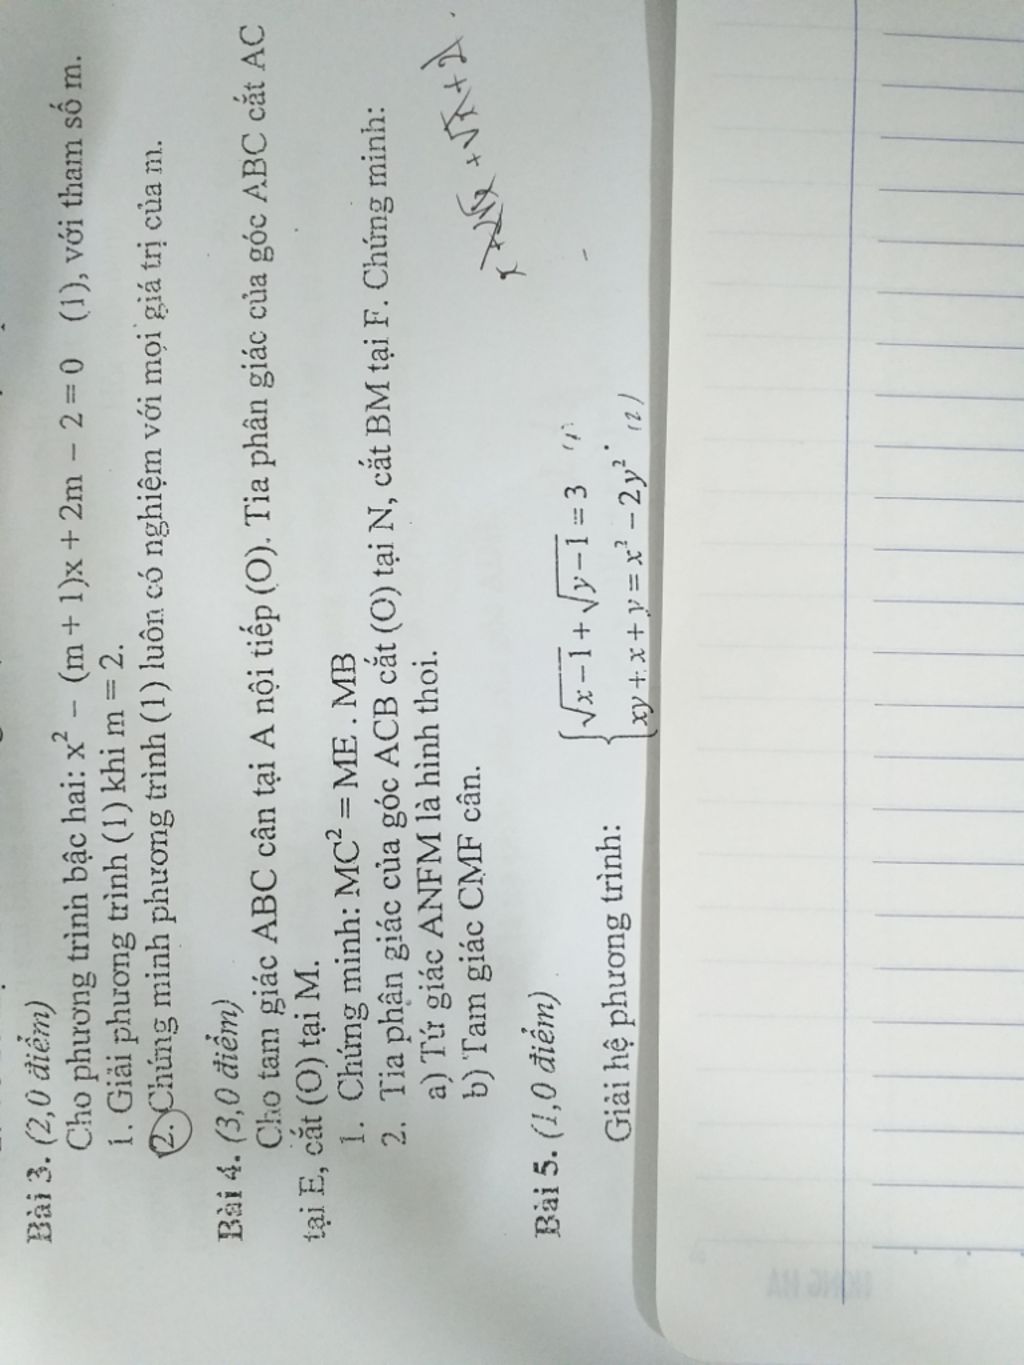 Bài 3. (2,0 điểm)
Cho phương trình bậc hai: x² − (m + 1)x + 2m − 2 = 0 (1), với tham số m.
1. Giải phương trình (1) khi m = 2.
2. Chứng minh phương trình (1) luôn có nghiệm với mọi giá trị của m.
Bài 4. (3,0 điểm)
Cho tam giác ABC cân tại A nội tiếp (O). Tia phân giác của góc ABC cắt AC
tại E, cắt (O) tại M.
1. Chứng minh: MC² = ME . MB
2. Tia phân giác của góc ACB cắt (O) tại N, cắt BM tại F. Chứng minh:
a) Tứ giác ANFM là hình thoi.
b) Tam giác CMF cân.
+ √x + 2
Bài 5. (1,0 điểm)
Giải hệ phương trình:
√x−1 + √y−1 = 3 (1)
xy + x + y = x² − 2y² (2)
HONG HA